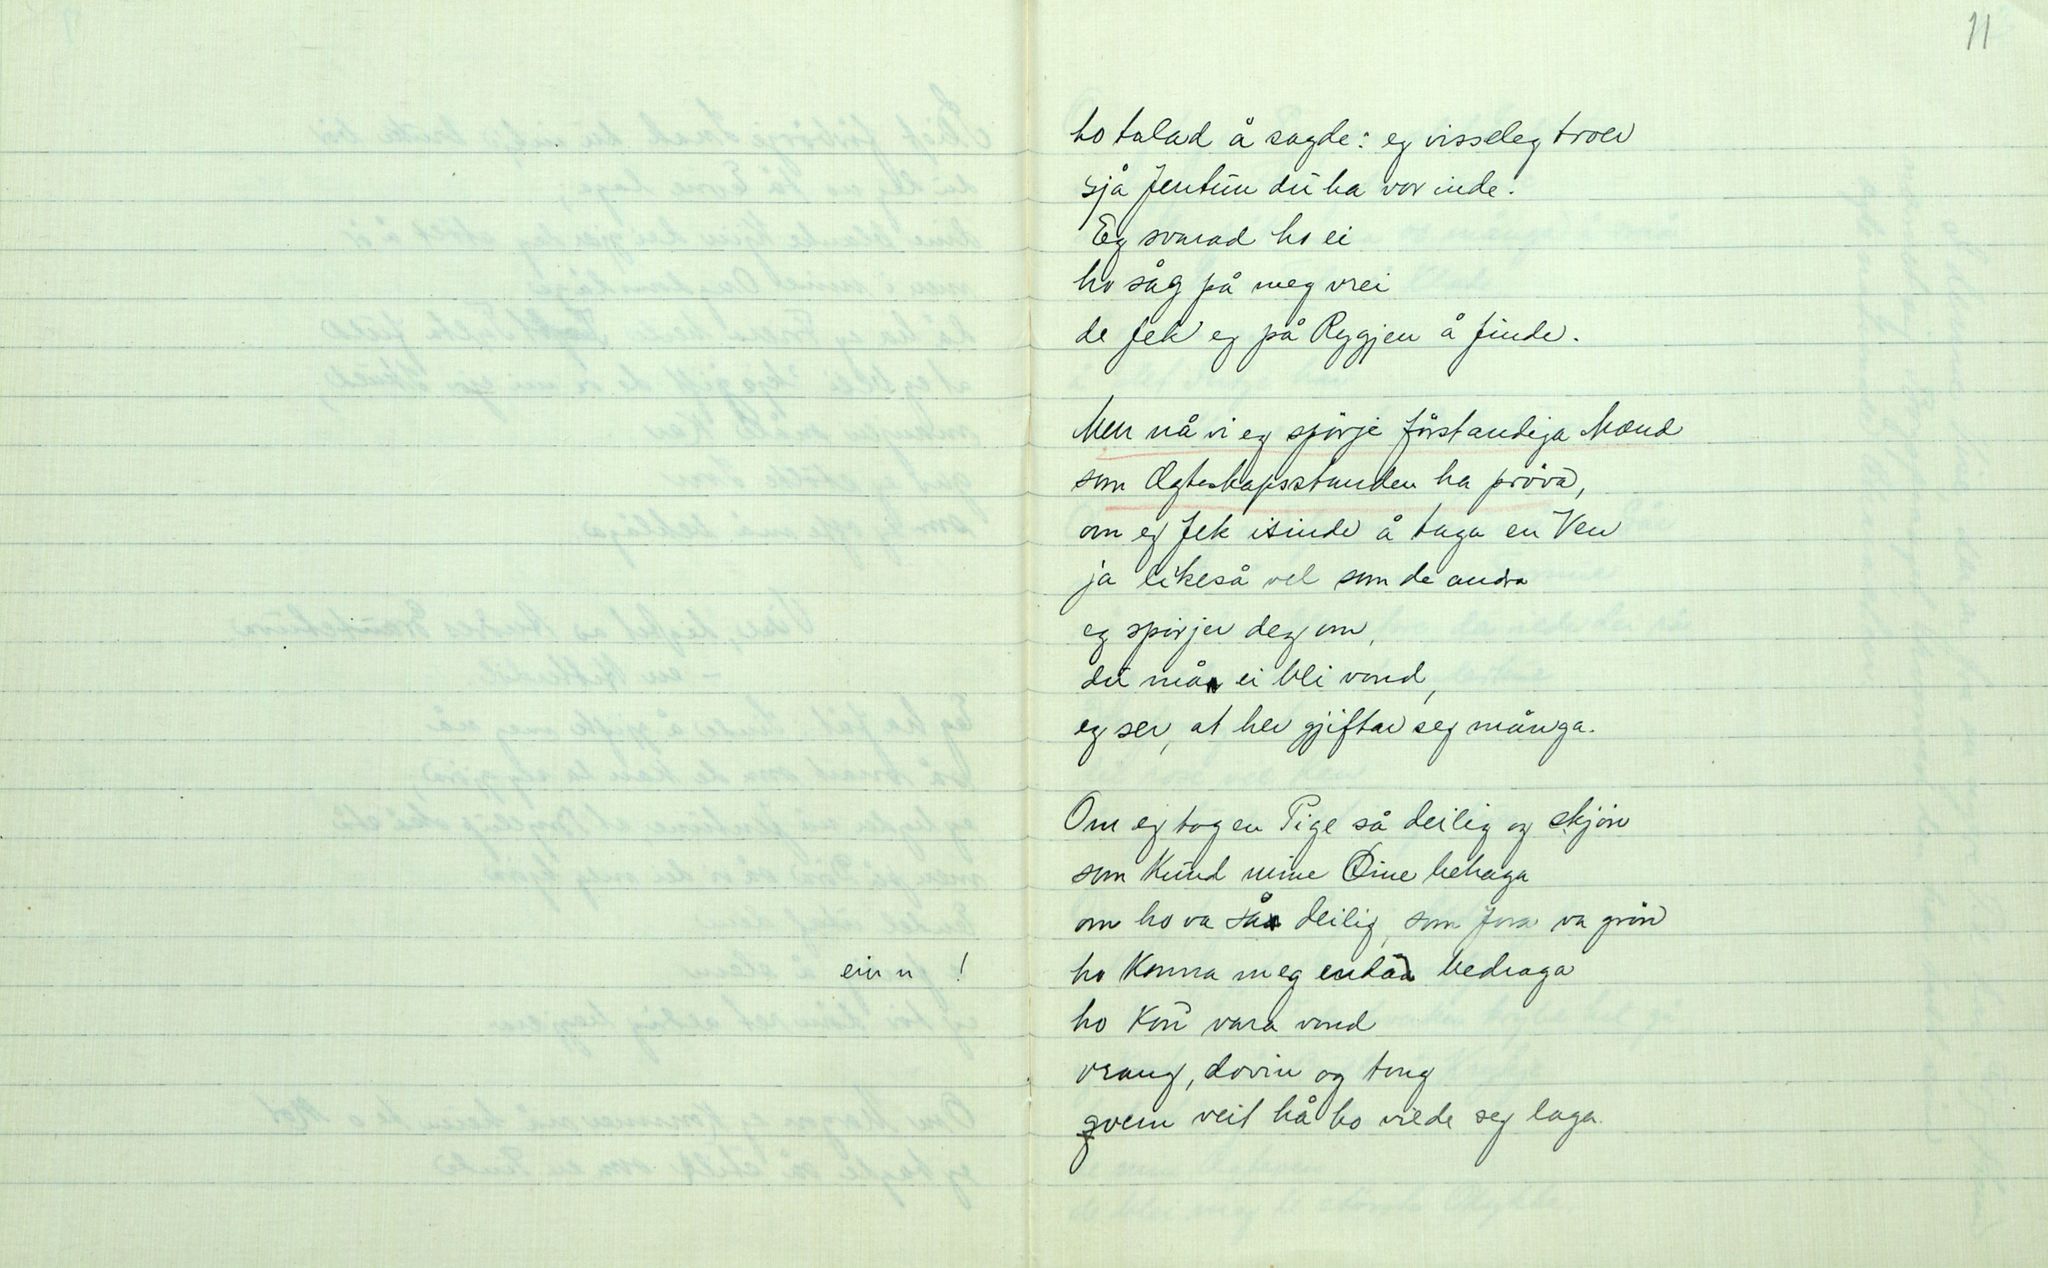 11
ho talad å sagde: eg visseleg troer
sjå Jentün dü ha vor inde.
Eg svarad ho ei
ho såg på meg vrei
de fek eg på Ryggjen å finde.
Men nå vi eg spörje förstandiga Mænd
som Ægteskapsstanden ha pröva,
om eg fek isinde å taga en Ven
ja likeså vel som de andra
eg spörjer deg om,
dü må ei bli vond,
eg ser, at her gjiftar seg många.
Om eg tog en Pige så deilig og skjön
som Künd mine Öine behaga
om ho va så deilig, som Jora va grön
einn !
ho Konna meg endåa bedraga
ho Kon vara vond
vrang, dovin og tung
gvem veit hå ho vilde seg laga.